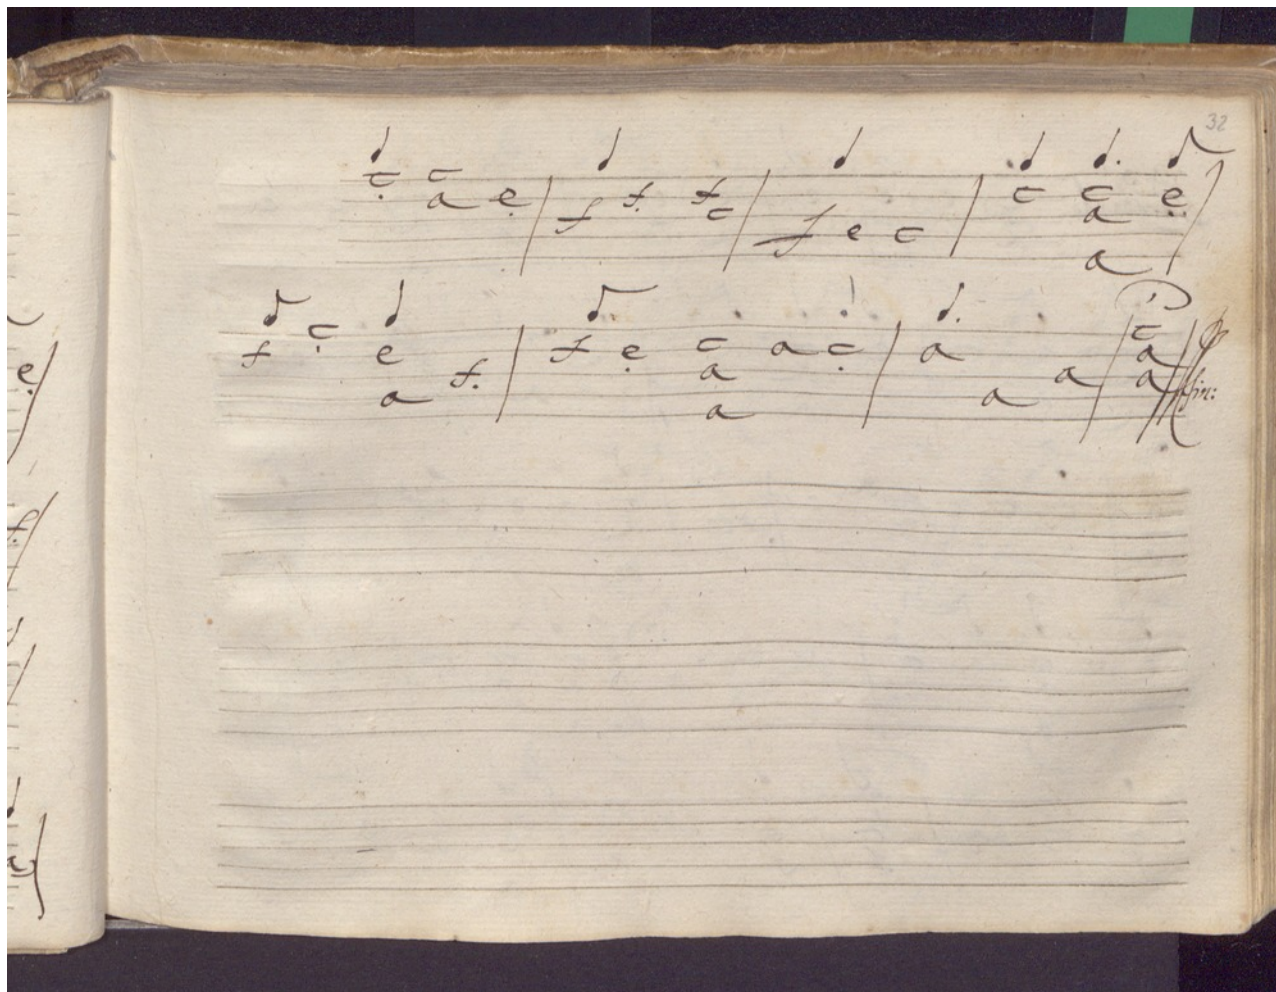 32
c c a e f f f c f e c c c a a e
f c e a f f e c a a a c a a a c a a
fin: